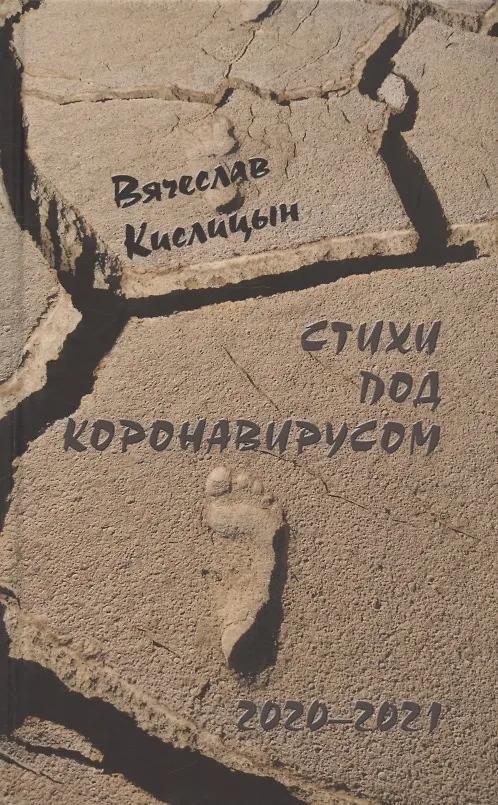 Вячеслав
Кислицын
СТИХИ
ПОД
КОРОНАВИРУСОМ
2020–2021